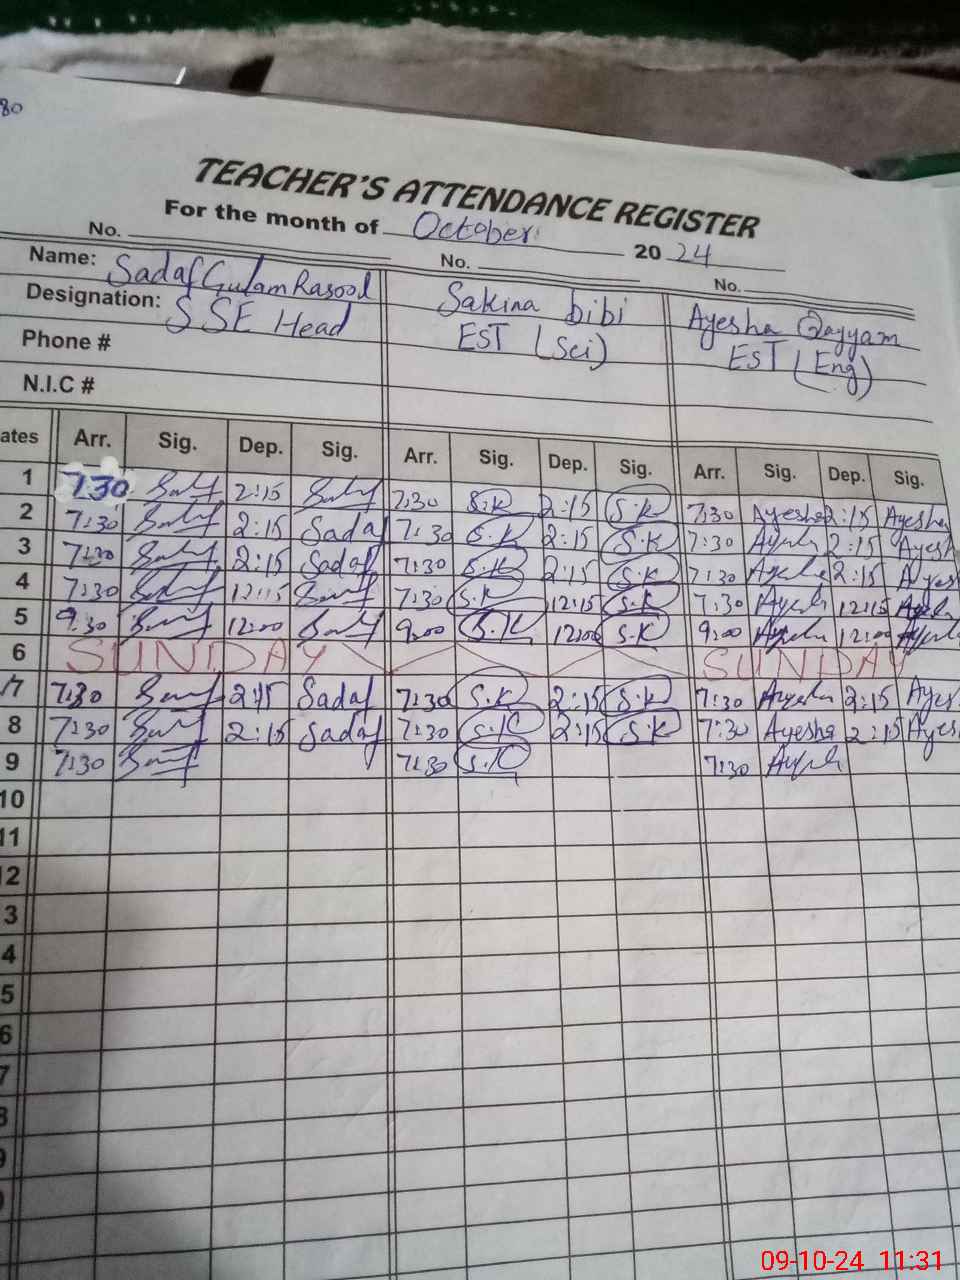 80
TEACHER'S ATTENDANCE REGISTER
For the month of October 20 24
No. No. No.
Name: Sadaf Gulam Rasool Sakina bibi Ayesha Qayyam
Designation: SSE Head EST (Sci) EST (Eng)
Phone #
N.I.C #
ates Arr. Sig. Dep. Sig. Arr. Sig. Dep. Sig. Arr. Sig. Dep. Sig.
1 7:30 2:15 7:30 S.K 2:15 S.K 7:30 Ayesha 2:15 Ayesha
2 7:30 2:15 Sadaf 7:30 S.K 2:15 S.K 7:30 2:15 Ayesh
3 7:30 2:15 Sadaf 7:30 S.K 2:15 S.K 7:30 2:15 Ayes
4 7:30 12:15 7:30 S.K 12:15 S.K 7:30 12:15
5 9:30 12:00 9:00 S.K 12:00 S.K 9:00 12:00
6 SUNDAY SUNDAY
7 7:30 2:15 Sadaf 7:30 S.K 2:15 S.K 7:30 2:15 Ayes
8 7:30 2:15 Sadaf 7:30 S.K 2:15 S.K 7:30 Ayesha 2:15 Ayes
9 7:30 7:30 S.K 7:30
10
11
12
3
4
5
6
7
8
9
09-10-24 11:31